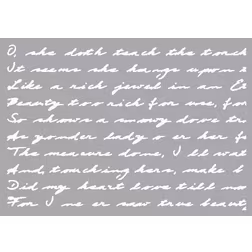 O, she doth teach the torch
It seems she hangs upon
Like a rich jewel in an E
Beauty too rich for use, fo
So shows a snowy dove tro
As yonder lady o er her f
The measure done, I ll wat
And, touching hers, make b
Did my heart love till no
For I ne er saw true beaut